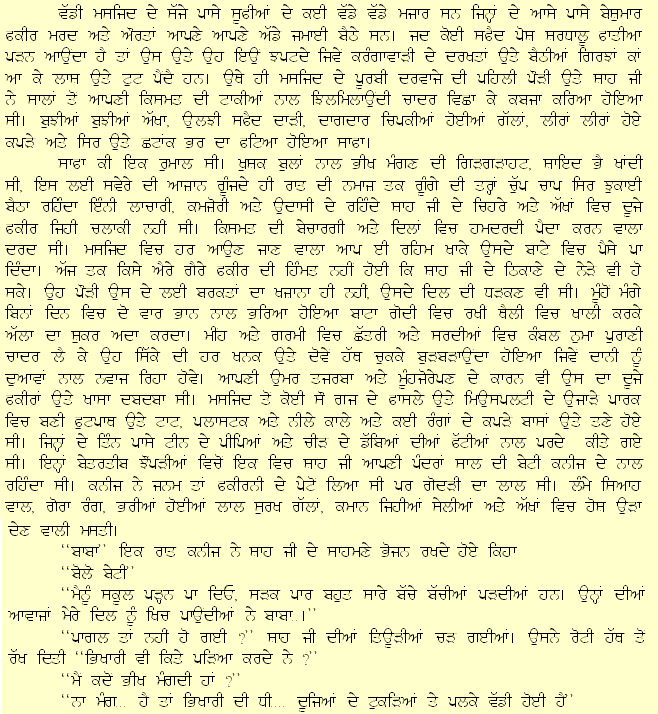 ਵੱਡੀ ਮਸਜਿਦ ਦੇ ਸੱਜੇ ਪਾਸੇ ਸੂਫੀਆਂ ਦੇ ਕਈ ਵੱਡੇ ਵੱਡੇ ਮਜਾਰ ਸਨ ਜਿਨ੍ਹਾਂ ਦੇ ਆਸੇ ਪਾਸੇ ਬੇਸੁਮਾਰ
ਫਕੀਰ ਮਰਦ ਅਤੇ ਔਰਤਾਂ ਆਪਣੇ ਆਪਣੇ ਅੱਡੇ ਜਮਾਈ ਬੈਠੇ ਸਨ। ਜਦ ਕੋਈ ਸਫੈਦ ਪੋਸ ਸਰਧਾਲੂ ਫਾਤੀਆ
ਪੜਨ ਆਉਂਦਾ ਹੈ ਤਾਂ ਉਸ ਉਤੇ ਉਹ ਇਉਂ ਝਪਟਦੇ ਜਿਵੇਂ ਕਰੰਗਾਵਾੜੀ ਦੇ ਦਰਖਤਾਂ ਉਤੇ ਬੈਠੀਆਂ ਗਿਰਝਾਂ ਕਾਂ
ਆ ਕੇ ਲਾਸ ਉਤੇ ਟੁਟ ਪੈਂਦੇ ਹਨ। ਉਥੇ ਹੀ ਮਸਜਿਦ ਦੇ ਪੂਰਬੀ ਦਰਵਾਜੇ ਦੀ ਪਹਿਲੀ ਪੌੜੀ ਉਤੇ ਸਾਹ ਜੀ
ਨੇ ਸਾਲਾਂ ਤੋਂ ਆਪਣੀ ਕਿਸਮਤ ਦੀ ਟਾਕੀਆਂ ਨਾਲ ਝਿਲਮਿਲਾਉਂਦੀ ਚਾਦਰ ਵਿਛਾ ਕੇ ਕਬਜਾ ਕਰਿਆ ਹੋਇਆ
ਸੀ। ਬੁਝੀਆਂ ਬੁਝੀਆਂ ਅੱਖਾਂ, ਉਲਝੀ ਸਫੈਦ ਦਾੜੀ, ਦਾਗਦਾਰ ਚਿਪਕੀਆਂ ਹੋਈਆਂ ਗੱਲਾਂ, ਲੀਰਾਂ ਲੀਰਾਂ ਹੋਏ
ਕਪੜੇ ਅਤੇ ਸਿਰ ਉਤੇ ਛਟਾਂਕ ਭਰ ਦਾ ਫਟਿਆ ਹੋਇਆ ਸਾਫਾ।
ਸਾਫਾ ਕੀ ਇਕ ਰੁਮਾਲ ਸੀ। ਖੁਸਕ ਬੁਲਾਂ ਨਾਲ ਭੀਖ ਮੰਗਣ ਦੀ ਗਿੜਗੜਾਹਟ, ਸਾਇਦ ਭੈ ਖਾਂਦੀ
ਸੀ, ਇਸ ਲਈ ਸਵੇਰੇ ਦੀ ਆਜਾਨ ਗੂੰਜਦੇ ਹੀ ਰਾਤ ਦੀ ਨਮਾਜ ਤਕ ਗੂੰਗੇ ਦੀ ਤਰ੍ਹਾਂ ਚੁੱਪ ਚਾਪ ਸਿਰ ਝੁਕਾਈ
ਬੈਠਾ ਰਹਿੰਦਾ ਇੰਨੀ ਲਾਚਾਰੀ, ਕਮਜੋਰੀ ਅਤੇ ਉਦਾਸੀ ਦੇ ਰਹਿੰਦੇ ਸਾਹ ਜੀ ਦੇ ਚਿਹਰੇ ਅਤੇ ਅੱਖਾਂ ਵਿਚ ਦੂਜੇ
ਫਕੀਰ ਜਿਹੀ ਚਲਾਕੀ ਨਹੀਂ ਸੀ। ਕਿਸਮਤ ਦੀ ਬੇਚਾਰਗੀ ਅਤੇ ਦਿਲਾਂ ਵਿਚ ਹਮਦਰਦੀ ਪੈਦਾ ਕਰਨ ਵਾਲਾ
ਦਰਦ ਸੀ। ਮਸਜਿਦ ਵਿਚ ਹਰ ਆਉਣ ਜਾਣ ਵਾਲਾ ਆਪ ਈ ਰਹਿਮ ਖਾਕੇ ਉਸਦੇ ਬਾਟੇ ਵਿਚ ਪੈਸੇ ਪਾ
ਦਿੰਦਾ। ਅੱਜ ਤਕ ਕਿਸੇ ਐਰੇ ਗੈਰੇ ਫਕੀਰ ਦੀ ਹਿੰਮਤ ਨਹੀਂ ਹੋਈ ਕਿ ਸਾਹ ਜੀ ਦੇ ਠਿਕਾਣੇ ਦੇ ਨੇੜੇ ਵੀ ਹੋ
ਸਕੇ। ਉਹ ਪੌੜੀ ਉਸ ਦੇ ਲਈ ਬਰਕਤਾਂ ਦਾ ਖਜਾਨਾ ਹੀ ਨਹੀਂ, ਉਸਦੇ ਦਿਲ ਦੀ ਧੜਕਣ ਵੀ ਸੀ। ਮੂੰਹੋਂ ਮੰਗੇ
ਬਿਨਾਂ ਦਿਨ ਵਿਚ ਦੋ ਵਾਰ ਭਾਨ ਨਾਲ ਭਰਿਆ ਹੋਇਆ ਬਾਟਾ ਗੋਦੀ ਵਿਚ ਰਖੀ ਥੈਲੀ ਵਿਚ ਖਾਲੀ ਕਰਕੇ
ਅੱਲਾ ਦਾ ਸ਼ੁਕਰ ਅਦਾ ਕਰਦਾ। ਮੀਂਹ ਅਤੇ ਗਰਮੀ ਵਿਚ ਛੱਤਰੀ ਅਤੇ ਸਰਦੀਆਂ ਵਿਚ ਕੰਬਲ ਨੁਮਾ ਪੁਰਾਣੀ
ਚਾਦਰ ਲੈ ਕੇ ਉਹ ਸਿੱਕੇ ਦੀ ਹਰ ਖਨਕ ਉਤੇ ਦੋਵੇਂ ਹੱਥ ਚੁਕਕੇ ਬੁੜਬੜਾਉਂਦਾ ਹੋਇਆ ਜਿਵੇਂ ਦਾਨੀ ਨੂੰ
ਦੁਆਵਾਂ ਨਾਲ ਨਵਾਜ ਰਿਹਾ ਹੋਵੇ। ਆਪਣੀ ਉਮਰ ਤਜਰਬਾ ਅਤੇ ਮੂੰਹਜੋਰੇਪਣ ਦੇ ਕਾਰਨ ਵੀ ਉਸ ਦਾ ਦੂਜੇ
ਫਕੀਰਾਂ ਉਤੇ ਖਾਸਾ ਦਬਦਬਾ ਸੀ। ਮਸਜਿਦ ਤੋਂ ਕੋਈ ਸੌ ਗਜ ਦੇ ਫਾਸਲੇ ਉਤੇ ਮਿਉਸਪਲਟੀ ਦੇ ਉਜਾੜੇ ਪਾਰਕ
ਵਿਚ ਬਣੀ ਫੁਟਪਾਥ ਉਤੇ ਟਾਟ, ਪਲਾਸਟਕ ਅਤੇ ਨੀਲੇ ਕਾਲੇ ਅਤੇ ਕਈ ਰੰਗਾਂ ਦੇ ਕਪੜੇ ਬਾਸਾਂ ਉਤੇ ਤਣੇ ਹੋਏ
ਸੀ। ਜਿਨ੍ਹਾਂ ਦੇ ਤਿੰਨ ਪਾਸੇ ਟੀਨ ਦੇ ਪੀਪਿਆਂ ਅਤੇ ਚੀੜ ਦੇ ਡੱਬਿਆਂ ਦੀਆਂ ਫੱਟੀਆਂ ਨਾਲ ਪਰਦੇ ਕੀਤੇ ਗਏ
ਸੀ। ਇਨ੍ਹਾਂ ਬੇਤਰਤੀਬ ਝੌਂਪੜੀਆਂ ਵਿਚੋਂ ਇਕ ਵਿਚ ਸਾਹ ਜੀ ਆਪਣੀ ਪੰਦਰਾਂ ਸਾਲ ਦੀ ਬੇਟੀ ਕਨੀਜ ਦੇ ਨਾਲ
ਰਹਿੰਦਾ ਸੀ। ਕਨੀਜ ਨੇ ਜਨਮ ਤਾਂ ਫਕੀਰਨੀ ਦੇ ਪੇਟੋਂ ਲਿਆ ਸੀ ਪਰ ਗੋਦੜੀ ਦਾ ਲਾਲ ਸੀ। ਲੰਮੇ ਸਿਆਹ
ਵਾਲ, ਗੋਰਾ ਰੰਗ, ਭਰੀਆਂ ਹੋਈਆਂ ਲਾਲ ਸੁਰਖ ਗੱਲਾਂ, ਕਮਾਨ ਜਿਹੀਆਂ ਸੇਲੀਆਂ ਅਤੇ ਅੱਖਾਂ ਵਿਚ ਹੋਸ ਉੜਾ
ਦੇਣ ਵਾਲੀ ਮਸਤੀ।
‘‘ਬਾਬਾ’’ ਇਕ ਰਾਤ ਕਨੀਜ ਨੇ ਸਾਹ ਜੀ ਦੇ ਸਾਹਮਣੇ ਭੋਜਨ ਰਖਦੇ ਹੋਏ ਕਿਹਾ
‘‘ਬੋਲੋ ਬੇਟੀ’’
‘‘ਮੈਨੂੰ ਸਕੂਲ ਪੜ੍ਹਨ ਪਾ ਦਿਓ, ਸੜਕ ਪਾਰ ਬਹੁਤ ਸਾਰੇ ਬੱਚੇ ਬੱਚੀਆਂ ਪੜਦੀਆਂ ਹਨ। ਉਨ੍ਹਾਂ ਦੀਆਂ
ਆਵਾਜਾਂ ਮੇਰੇ ਦਿਲ ਨੂੰ ਖਿਚ ਪਾਉਂਦੀਆਂ ਨੇ ਬਾਬਾ..।’’
‘‘ਪਾਗਲ ਤਾਂ ਨਹੀਂ ਹੋ ਗਈ ?’’ ਸਾਹ ਜੀ ਦੀਆਂ ਤਿਊੜੀਆਂ ਚੜ ਗਈਆਂ। ਉਸਨੇ ਰੋਟੀ ਹੱਥ ਤੋਂ
ਰੱਖ ਦਿਤੀ ‘‘ਭਿਖਾਰੀ ਵੀ ਕਿਤੇ ਪੜਿਆ ਕਰਦੇ ਨੇ ?’’
‘‘ਮੈਂ ਕਦੋਂ ਭੀਖ ਮੰਗਦੀ ਹਾਂ ?’’
‘‘ਨਾ ਮੰਗ... ਹੈ ਤਾਂ ਭਿਖਾਰੀ ਦੀ ਧੀ... ਦੂਜਿਆਂ ਦੇ ਟੁਕੜਿਆਂ ਤੇ ਪਲਕੇ ਵੱਡੀ ਹੋਈ ਹੈਂ’’